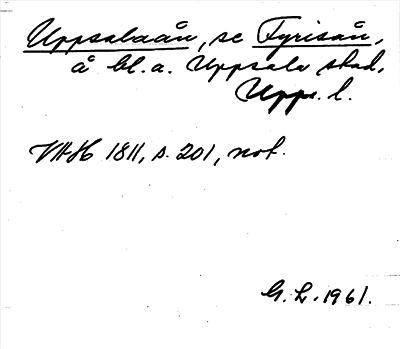 Uppsalaån, se Fyrisån,
å bl.a. Uppsala stad,
Upps. l.
VAH 1811, s. 201, not.
G. L. 1961.